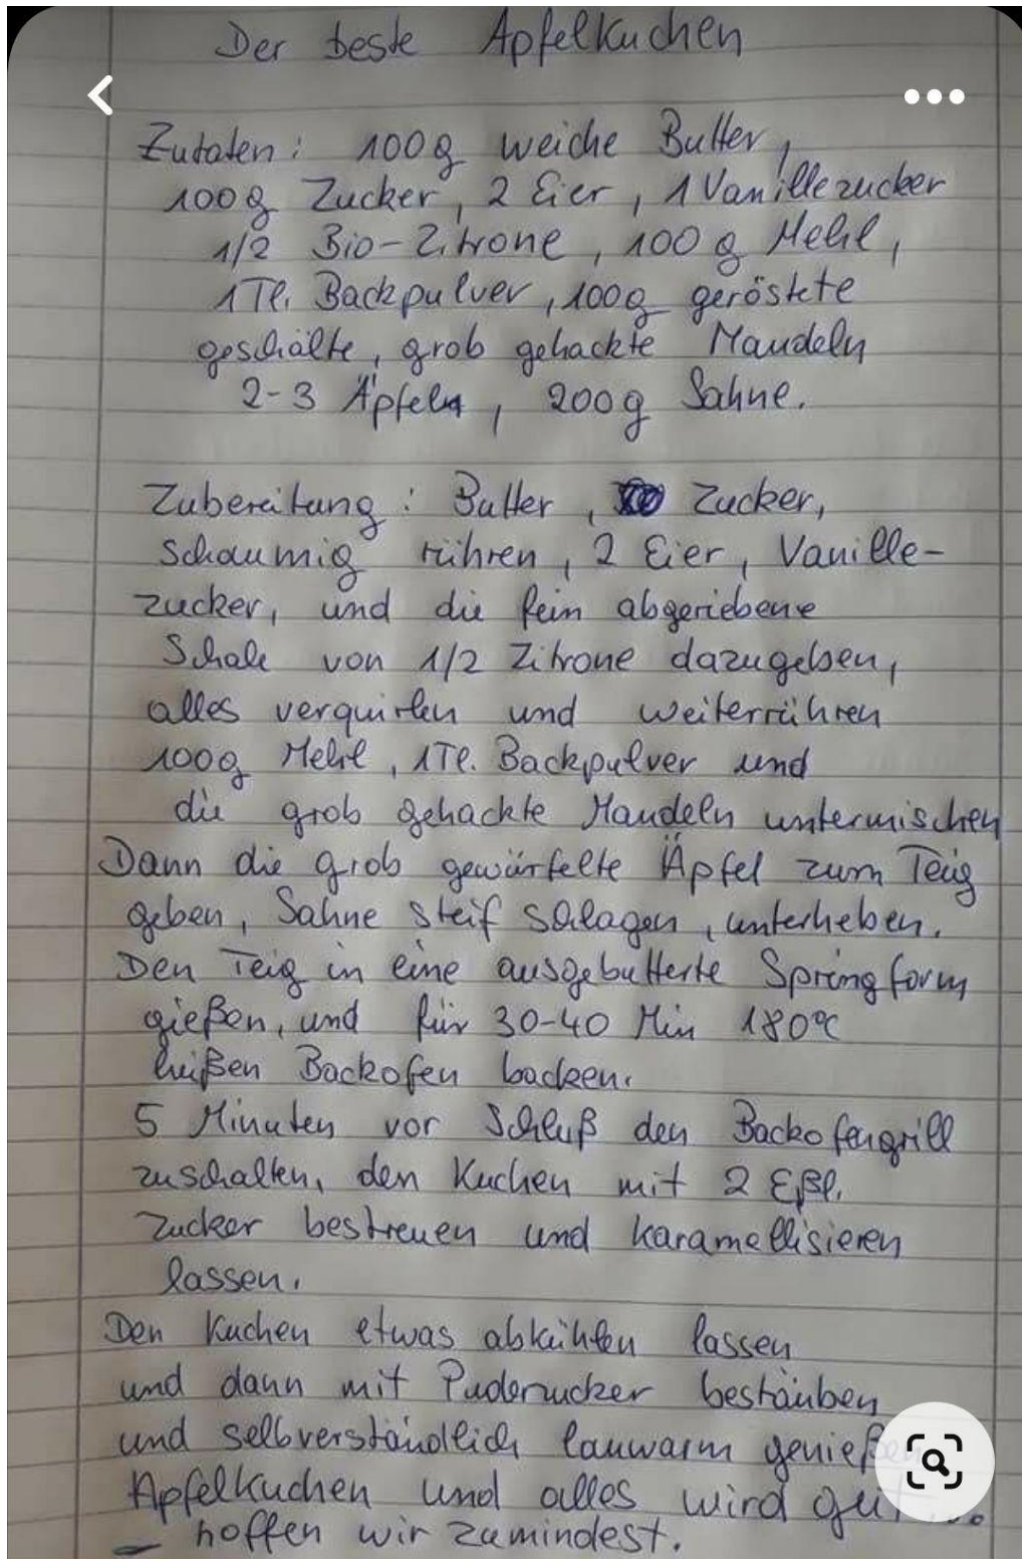 Der beste Apfelkuchen
Zutaten: 100g weiche Butter,
100g Zucker, 2 Eier, 1 Vanillezucker
1/2 Bio-Zitrone, 100g Mehl,
1 Tl. Backpulver, 100g geröstete
geschälte, grob gehackte Mandeln
2-3 Äpfeln, 200g Sahne.
Zubereitung: Butter, Zucker,
schaumig rühren, 2 Eier, Vanille-
zucker, und die fein abgeriebene
Schale von 1/2 Zitrone dazugeben,
alles verquirlen und weiterrühren
100g Mehl, 1Tl. Backpulver und
die grob gehackte Mandeln untermischen
Dann die grob gewürfelte Äpfel zum Teig
geben, Sahne steif schlagen, unterheben.
Den Teig in eine ausgebutterte Springform
gießen, und für 30-40 Min 180°C
heißen Backofen backen.
5 Minuten vor Schluß den Backofengrill
zuschalten, den Kuchen mit 2 Eßl.
Zucker bestreuen und karamellisieren
lassen.
Den Kuchen etwas abkühlen lassen
und dann mit Puderzucker bestäuben
und selbverständlich lauwarm genießen
Apfelkuchen und alles wird gut...
- hoffen wir zumindest.